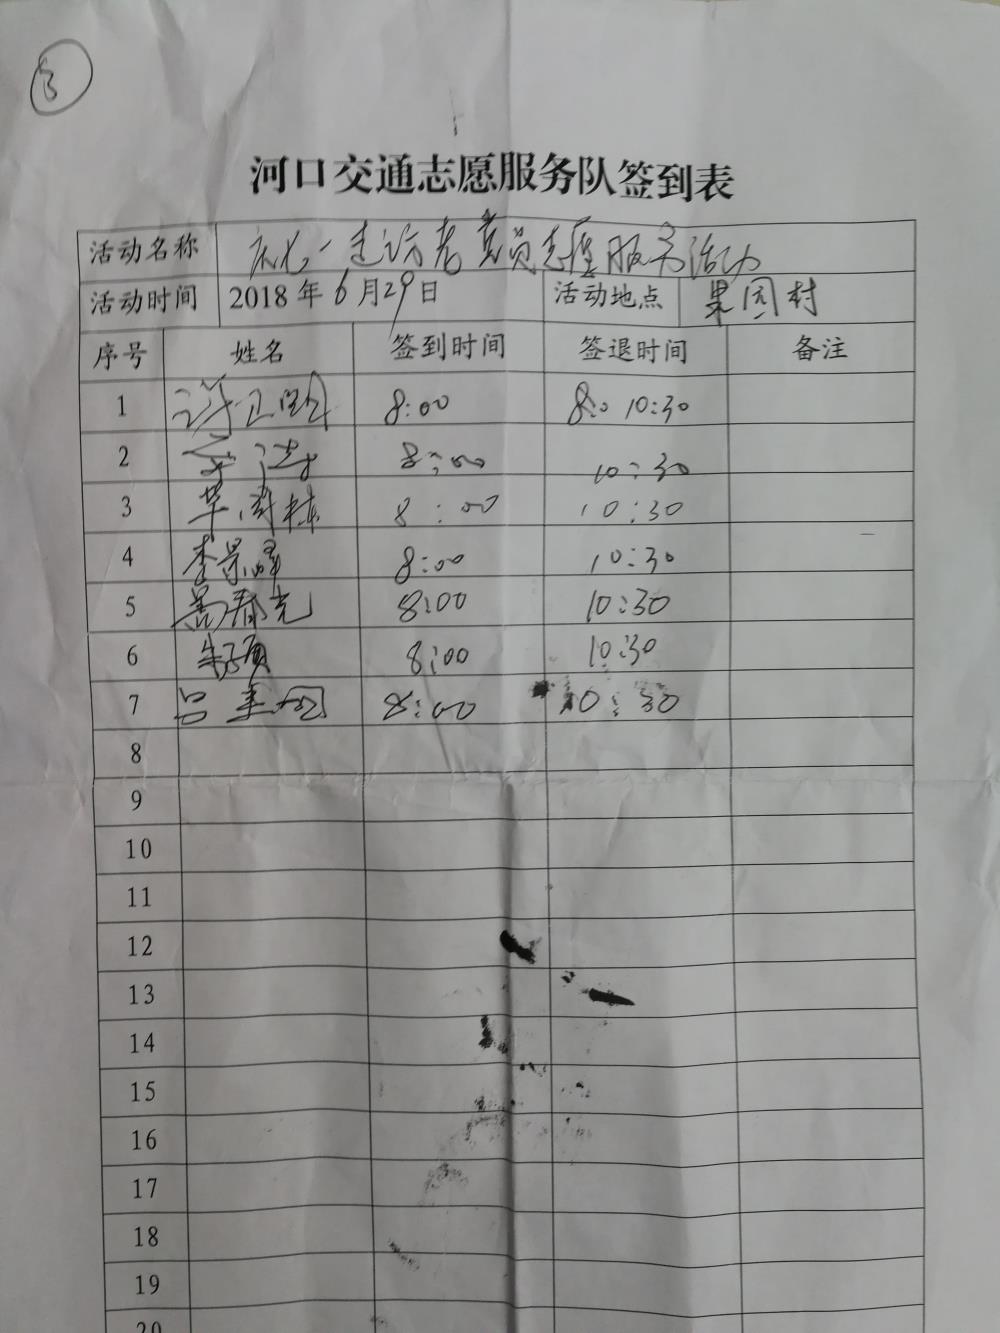 河口交通志愿服务队签到表
活动名称 庆七一走访老党员志愿服务活动
活动时间 2018年6月29日 活动地点 果园村
序号 姓名 签到时间 签退时间 备注
1 许卫国 8:00 10:30
2 8:00 10:30
3 8:00 10:30
4 李景峰 8:00 10:30
5 8:00 10:30
6 8:00 10:30
7 吕 8:00 10:30
8
9
10
11
12
13
14
15
16
17
18
19
20